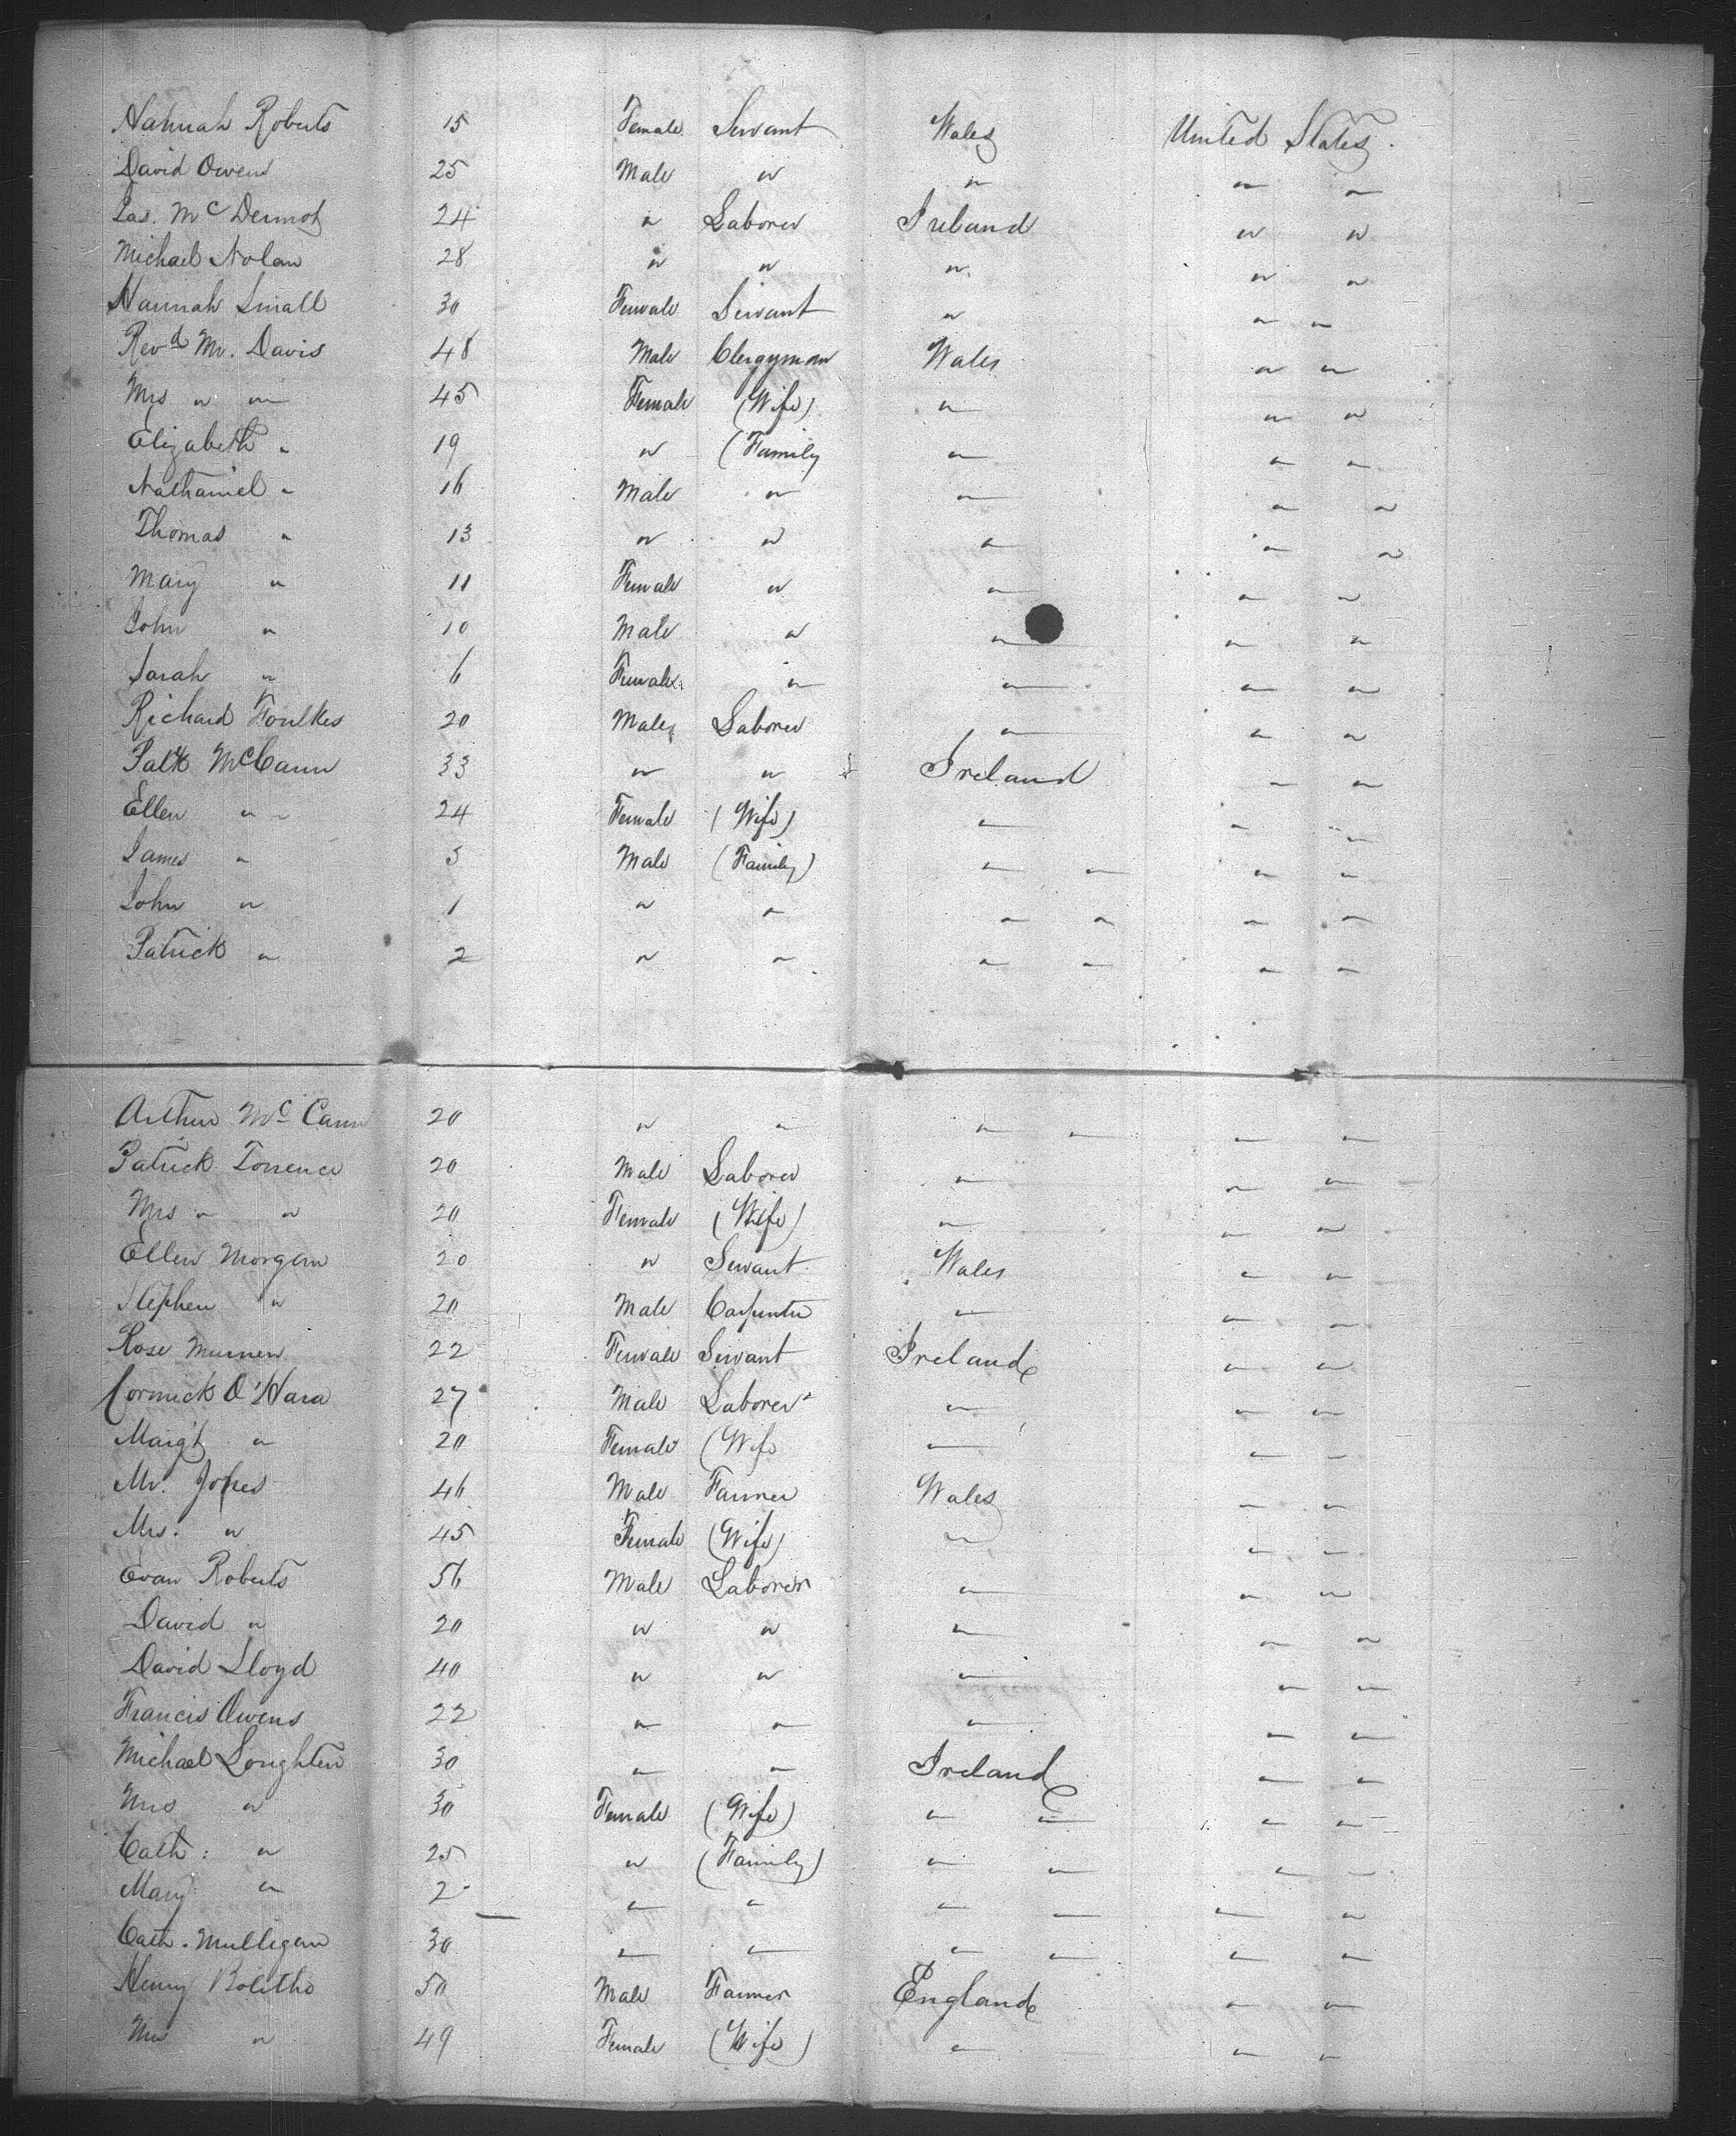 Hannah Roberts 15 Female Servant Wales United States.
David Owens 25 Male " " " "
Jas. McDermot 24 " Laborer Ireland " "
Michael Nolan 28 " " " " "
Hannah Small 30 Female Servant " " "
Revd Mr. Davis 48 Male Clergyman Wales " "
Mrs " " 45 Female (Wife) " " "
Elizabeth " 19 " (Family " " "
Nathaniel " 16 Male " " " "
Thomas " 13 " " " " "
Mary " 11 Female " " " "
John " 10 Male " " " "
Sarah " 6 Female " " " "
Richard Foulkes 20 Male Laborer " " "
Patk McCann 33 " " Ireland " "
Ellen " " 24 Female (Wife) " " "
James " 3 Male (Family) " " " "
John " 1 " " " " " "
Patrick " 2 " " " " " "
Arthur McCann 20 " " " " " "
Patrick Torrence 20 Male Laborer " " "
Mrs " " 20 Female (Wife) " " "
Ellen Morgan 20 " Servant Wales " "
Stephen " 20 Male Carpenter " " "
Rose 22 Female Servant Ireland " "
Cormick O'Hara 27 Male Laborer " " "
Margt " 20 Female (Wife " " "
Mr. Jones 46 Male Farmer Wales " "
Mrs. " 45 Female (Wife) " " "
Evan Roberts 56 Male Laborer " " "
David " 20 " " " " "
David Lloyd 40 " " " " "
Francis Owens 22 " " " " "
Michael Loughlen 30 " " Ireland " "
Mrs " 30 Female (Wife) " " " "
Cath: " 25 " (Family) " " " "
Mary " 2 " " " " " "
Cath. Mulligan 30 " " " " " "
Henry Bolitho 50 Male Farmer England " "
Mrs " 49 Female (Wife) " " "